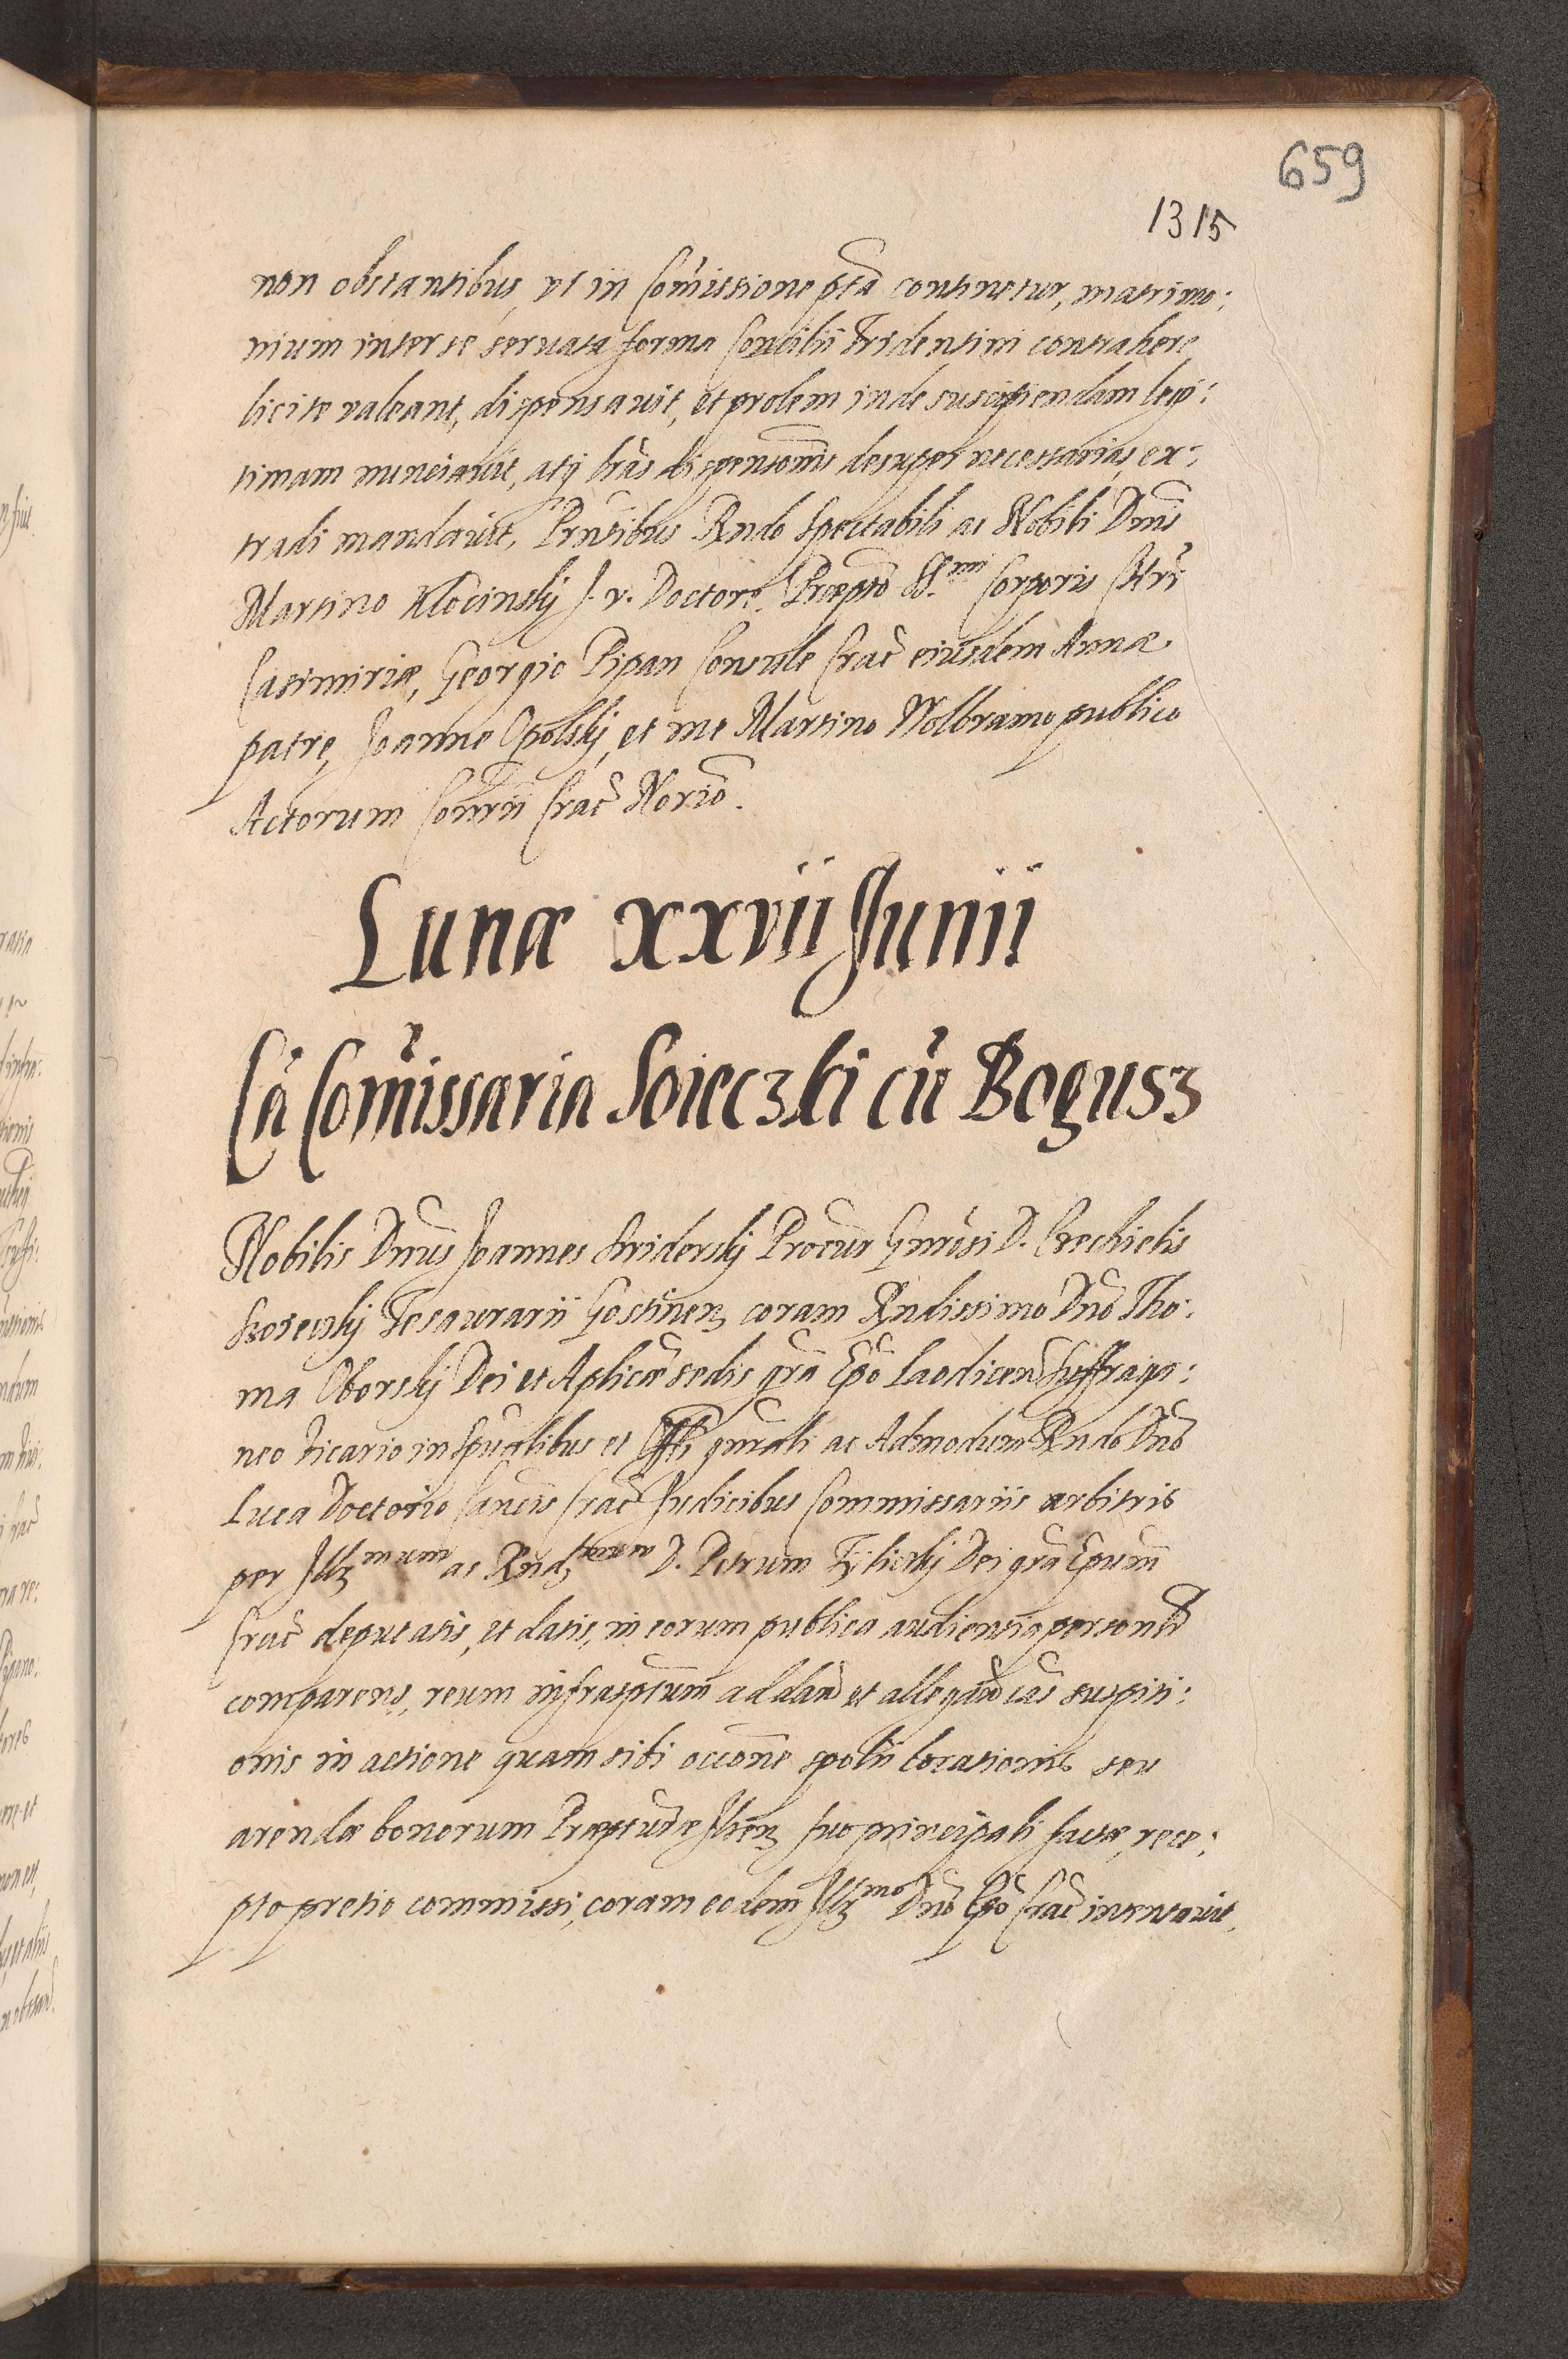 659
1315
non obstantibus, vt in Com̃issione pſta continetur, matrimo:
nium inter se seruata forma Concilii Tridentini contrahere
licite valeant, dispensauit, et prolem inde suscipiendam legi:
timam nunciauit, atq̃ lr̃as dispensom̃s desuper necessarias, ex:
tradi mandauit, Prñtibus Rndo Spectabili ac Nobili Dñis
Martino Klocinskij J. v. Doctore, Præpto SS.mi Corporis Chri
Casimiriæ, Georgio Pipan Consule Crac̃ eiusdem Annæ
patre, Joanne Opolskij, et me Martino Wolbramo publico
Actorum Consrii Crac̃ Norio.
Lunæ xxvii Junii
Cã Com̃issaria Soieczki cũ Bogusz
Nobilis Dnus Joannes Kriderskij Procur Gñrosi D. Ezechielis
Tesaurarii Gostinen̄ coram Rndissimo Dño Tho:
ma Oborskij Dei et Aplicæ sedis gr̃a Epõ Laodicen̄ Suffraga:
neo Vicario in Spũalibus et Offli gñrali ac Admodum Rndo Dño
Luca Doctorio Canc̃is Crac̃ Judicibus Commissariis arbitris
per Illmum ac Rndmum D. Petrum Tylickij Dei gr̃a Epum̃
Crac̃ deputatis, et datis, in eorum publica audientia personr
comparens, reum infrasptum̃ ad dand̃ et allegand̃ cãs suspiti:
onis in actione quam sibi occõne spolii locationis seu
arendæ bonorum Præpturæ Ilzen̄ suo principali factæ, rece:
pto pretio commissi, coram eodem Illmo Dño Epõ Crac̃ intentauit,